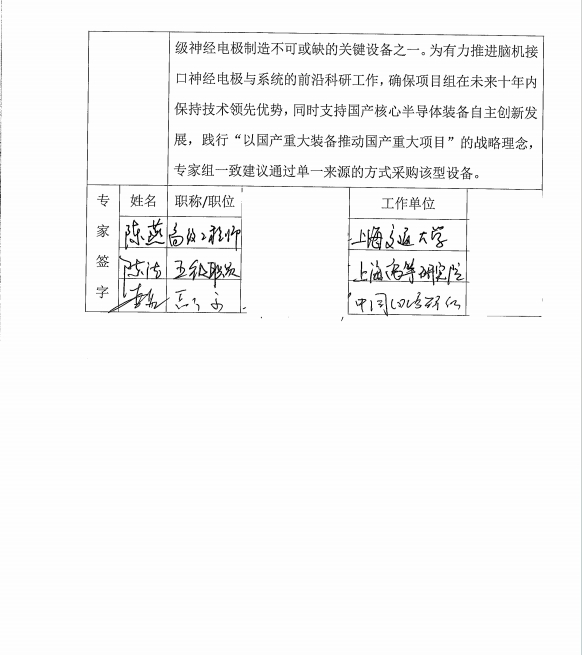 级神经电极制造不可或缺的关键设备之一。为有力推进脑机接
口神经电极与系统的前沿科研工作，确保项目组在未来十年内
保持技术领先优势，同时支持国产核心半导体装备自主创新发
展，践行“以国产重大装备推动国产重大项目”的战略理念，
专家组一致建议通过单一来源的方式采购该型设备。
专家签字
姓名 职称/职位 工作单位
陈燕 高级工程师 上海交通大学
陈 五级职员 上海高等研究院
中国